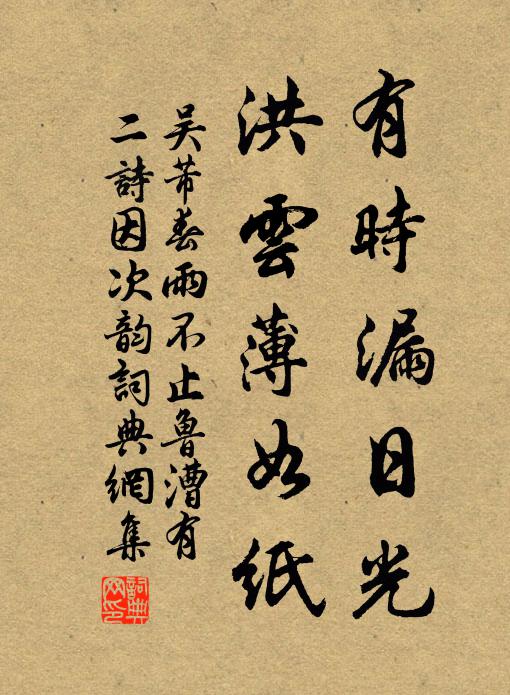 有時漏日光
洪雲薄如紙
吴芾春雨不止魯漕有
二詩因次韵詞典網集
詞典网印